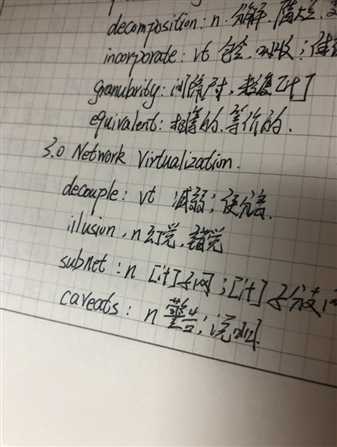 decomposition: n 分解.
incorporate: vt 包含.吸收;
granubrity: 间隔尺寸.粒度[计]
equivalent: 相等的.等价的.
3.0 Network Virtualization.
decouple: vt 减弱;使分离.
illusion. n 幻觉.错觉
subnet: n [计]子网;[计]子波
caveats: n 警告;说明.